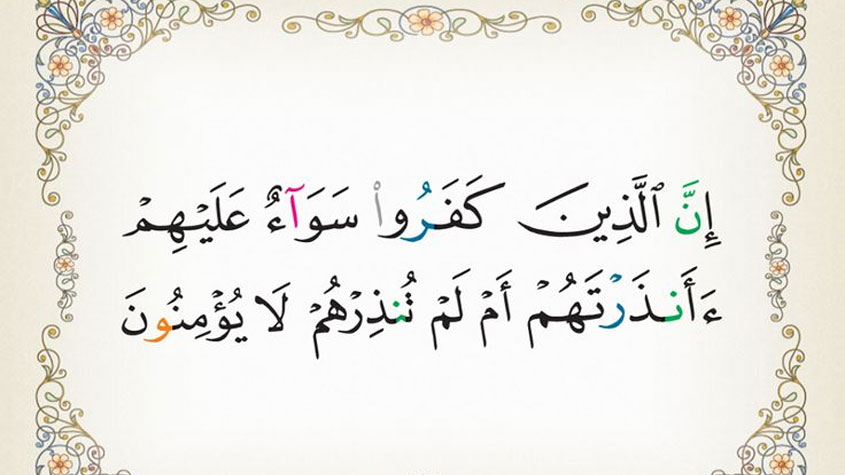 إِنَّ ٱلَّذِينَ كَفَرُوا۟ سَوَآءٌ عَلَيْهِمْ
ءَأَنذَرْتَهُمْ أَمْ لَمْ تُنذِرْهُمْ لَا يُؤْمِنُونَ